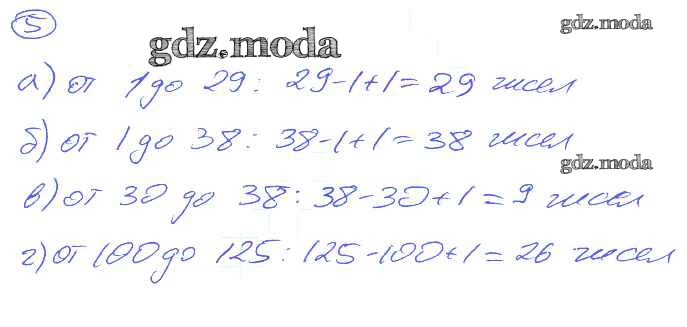 5
gdz.moda
gdz.moda
а) от 1 до 29 : 29-1+1=29 чисел
б) от 1 до 38 : 38-1+1=38 чисел
gdz.moda
в) от 30 до 38 : 38-30+1=9 чисел
г) от 100 до 125 : 125-100+1=26 чисел